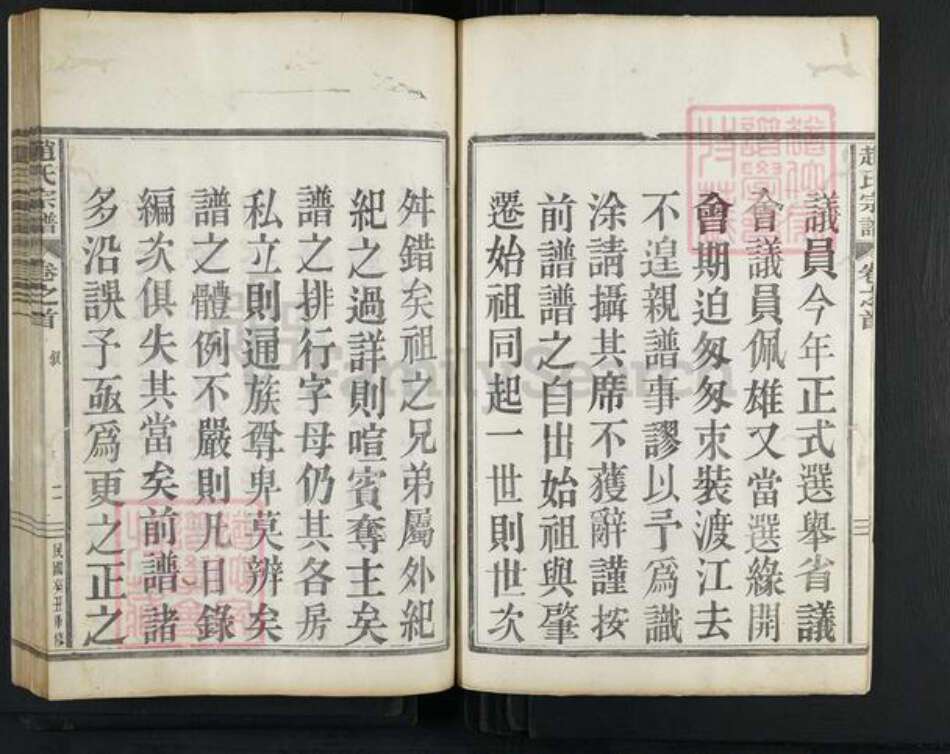 趙氏宗譜 卷之首
議員今年正式選舉省議
會議員佩雄又當選緣開
會期迫匆匆束裝渡江去
不遑親譜事謬以予爲識
涂請攝其席不獲辭謹按
前譜譜之自出始祖與肇
遷始祖同起一世則世次
舛錯矣祖之兄弟屬外紀
紀之過詳則喧賓奪主矣
譜之排行字母仍其各房
私立則通族尊卑莫辨矣
譜之體例不嚴則凡目錄
編次俱失其當矣前譜諸
多沿誤予亟爲更之正之
趙氏宗譜 卷之首 叙 二 民國癸丑重修
FamilySearch